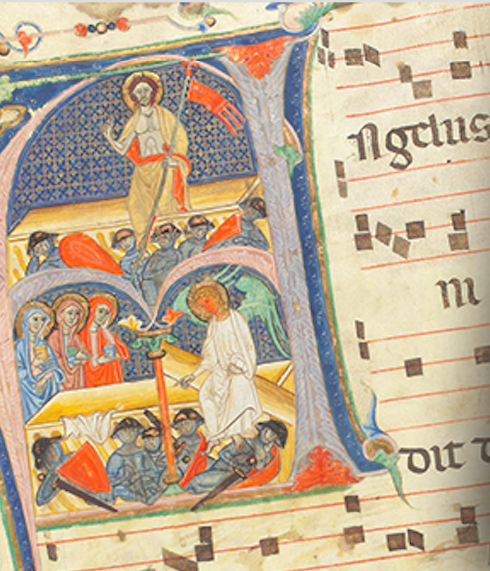 ngelus
m
dit